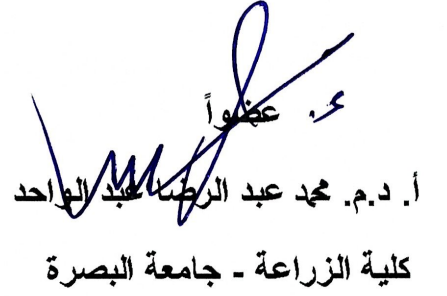 ع. عضواً
أ. د.م. محمد عبد الرضا عبد الواحد
كلية الزراعة - جامعة البصرة